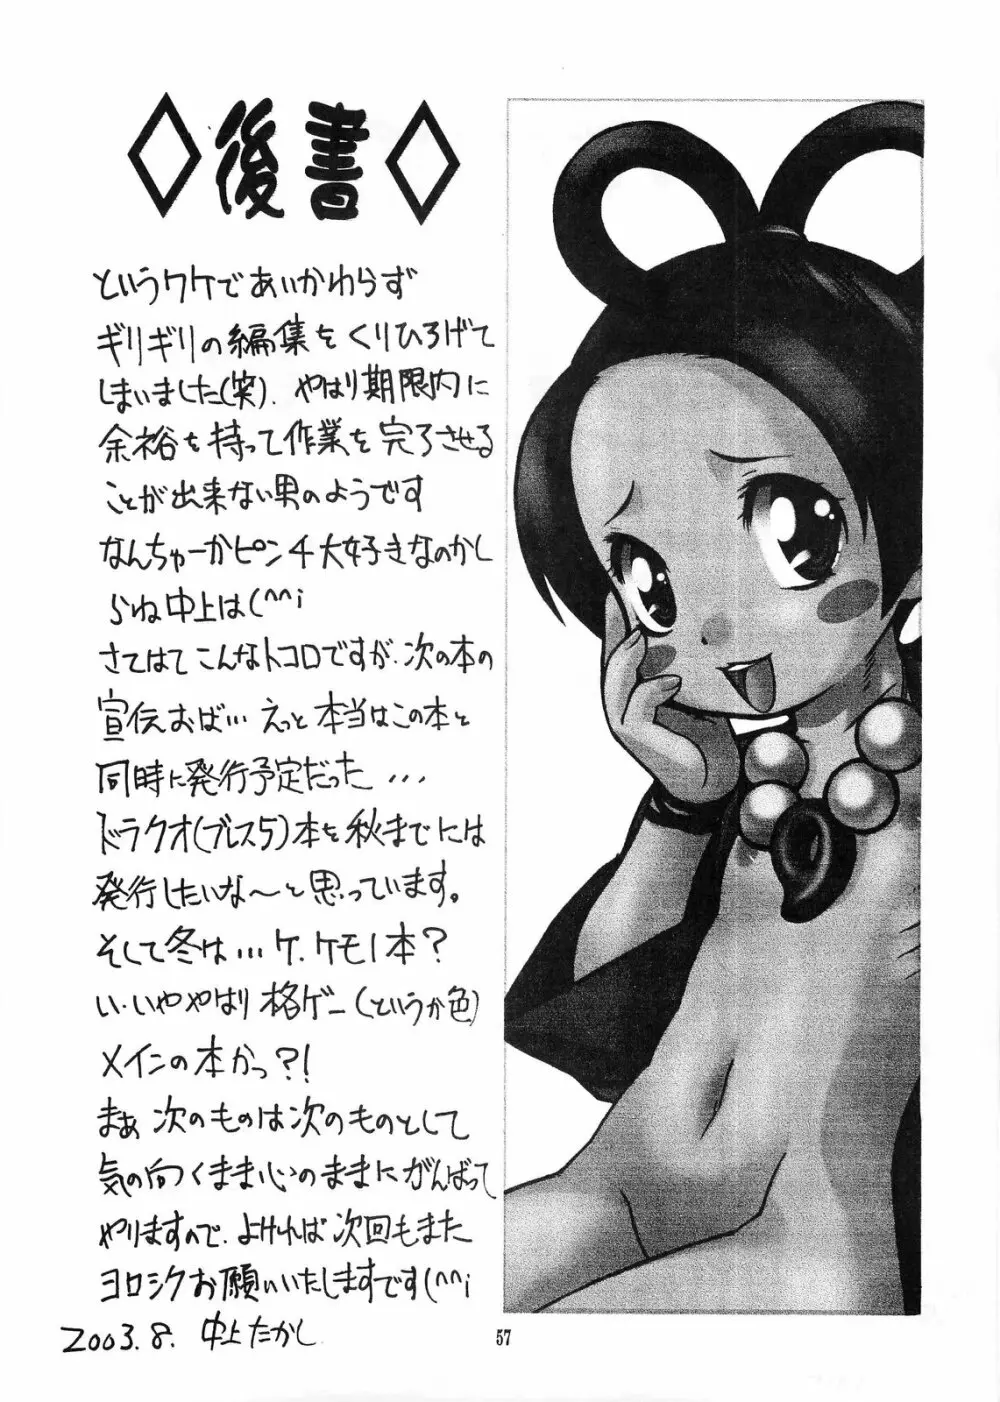 ◇後書◇
というワケであいかわらず
ギリギリの編集をくりひろげて
しまいました(笑)、やはり期限内に
余裕を持って作業を完了させる
ことが出来ない男のようです
なんちゅーかピンチ大好きなのかし
らね中上は(^^;
さてはてこんなトコロですが、次の本の
宣伝おば… えっと本当はこの本と
同時に発行予定だった...
ドラクオ(ブレス5)本を秋までには
発行したいな〜と思っています。
そして冬は…ケ、ケモノ本?
い・いややはり格ゲー(というか色)
メインの本かっ?!
まぁ次のものは次のものとして
気の向くまま心のままにがんばって
やりますので、よければ次回もまた
ヨロシクお願いいたしますです(^^;
2003.8. 中上たかし
57